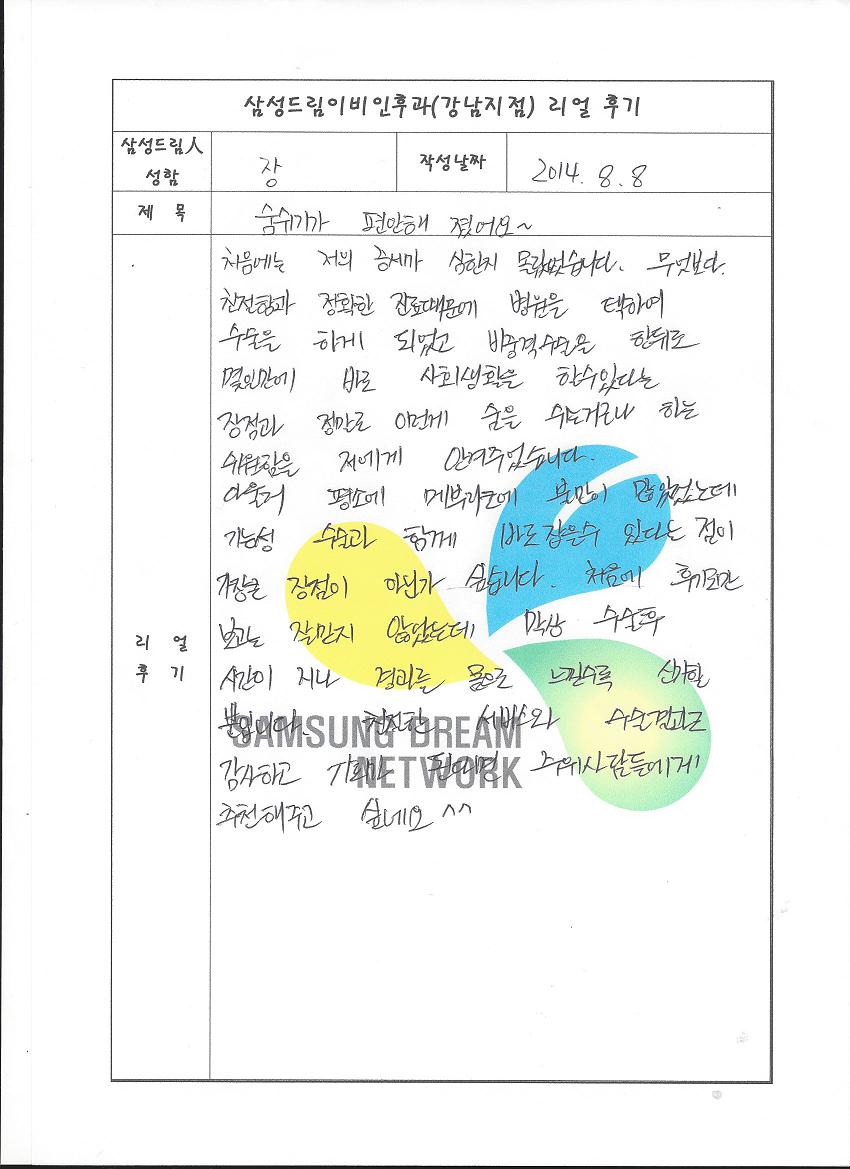 삼성드림이비인후과(강남지점) 리얼 후기
삼성드림人
성함
장
작성날짜
2014. 8. 8
제 목
숨쉬기가 편안해 졌어요~
처음에는 저의 증세가 심한지 몰랐었습니다. 무엇보다
친절함과 정확한 진료때문에 병원을 택하여
수술을 하게 되었고 비중격수술을 한뒤로
몇일만에 바로 사회생활을 할수있다는
장점과 정말로 이런게 숨을 쉬는거로나 하는
쉬원함을 저에게 안겨주었습니다.
아울러 평소에 메부리코에 불만이 많았었는데
기능성 수술과 함께 바로잡을수 있다는 점이
가장큰 장점이 아닌가 싶습니다. 처음에 후기만
보고는 잘믿지 않았는데 막상 수술후
시간이 지나 경과를 몸으로 느낄수록 신기할
뿐입니다. 친절한 서비스와 수술결과로
감사하고 기회가 된다면 주위사람들에게
추천해주고 싶네요 ^^
리 얼
후 기
SAMSUNG DREAM
NETWORK